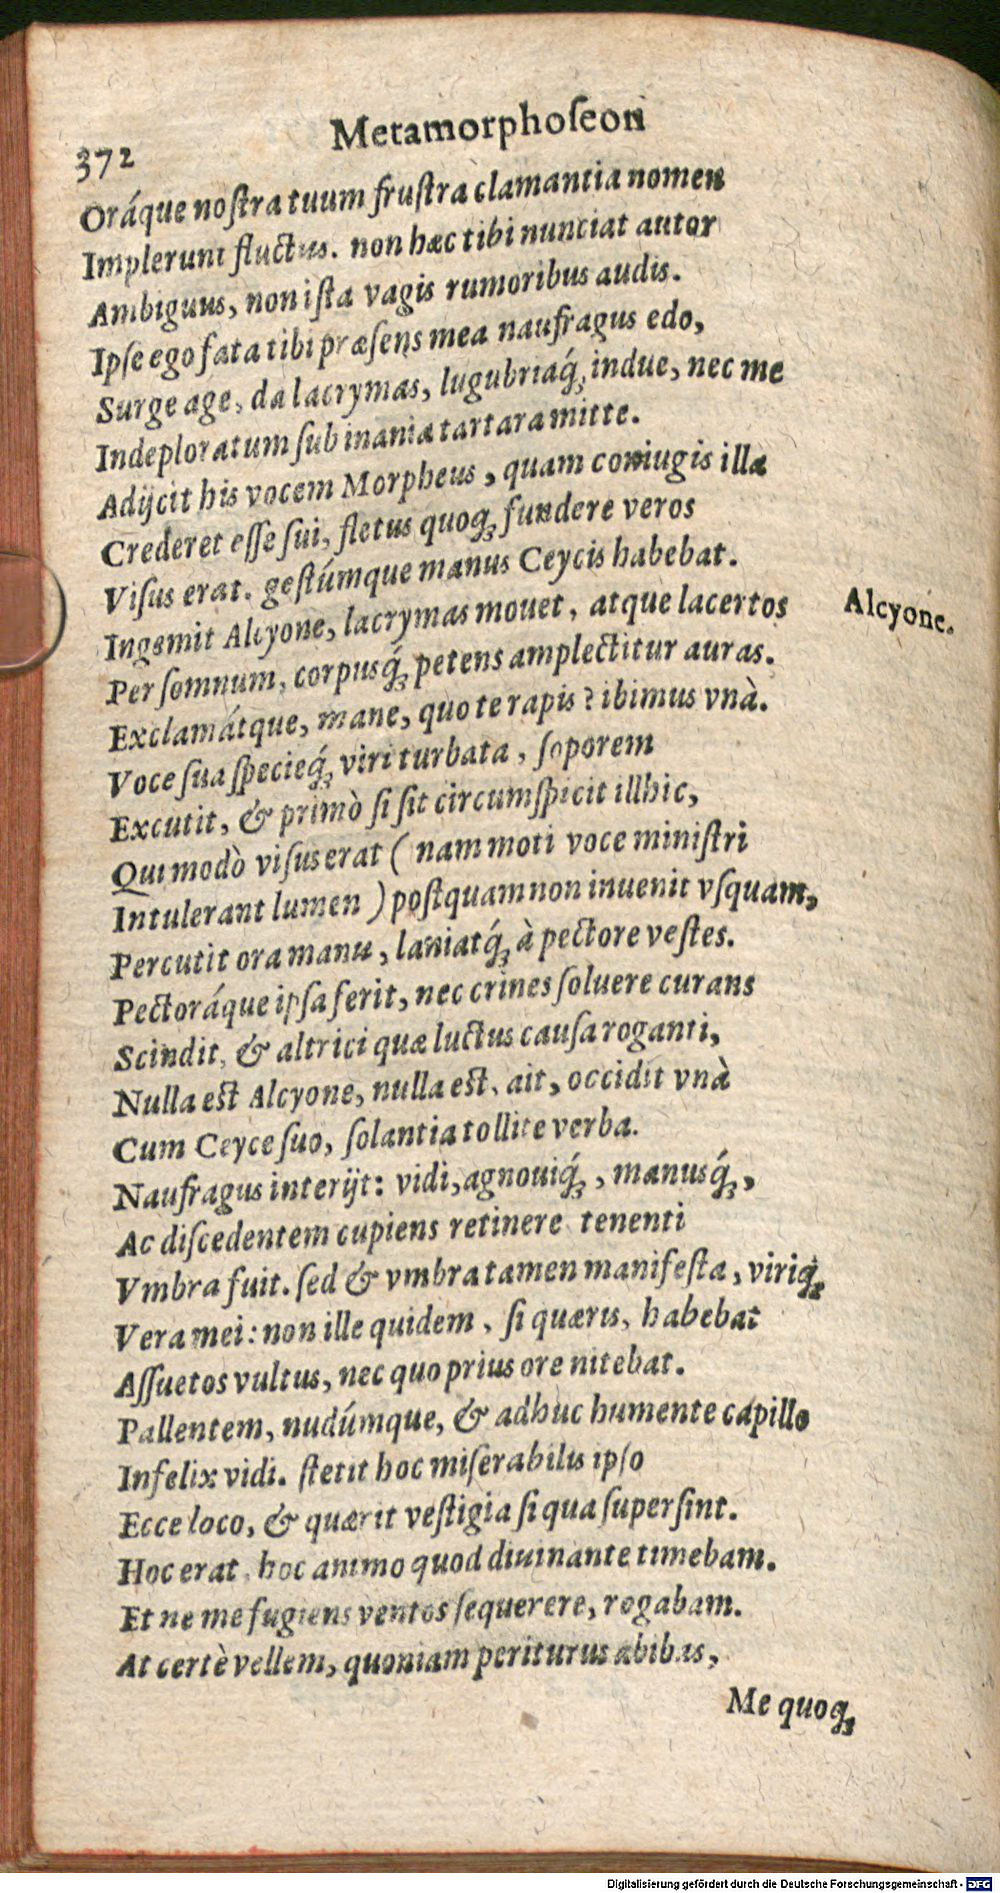 372
Metamorphoſeon
Oráque noſtra tuum fruſtra clamantia nomen
Implerunt fluctus. non hæc tibi nunciat autor
Ambiguus, non iſta vagis rumoribus audis.
Ipſe ego fata tibi præſens mea naufragus edo,
Surge age, da lacrymas, lugubriaq́;, indue, nec me
Indeploratum ſub inania tartara mitte.
Adijcit his vocem Morpheus, quam coniugis illa
Crederet eſſe ſui, fletus quoq; fundere veros
Viſus erat. geſtúmque manus Ceycis habebat.
Ingemit Alcyone, lacrymas mouet, atque lacertos
Alcyone.
Per ſomnum, corpusq́; petens amplectitur auras.
Exclamátque, mane, quo te rapis? ibimus vnà.
Voce ſua ſpecieq́; viri turbata, ſoporem
Excutit, & primò ſi ſit circumſpicit illhic,
Qui modò viſus erat (nam moti voce miniſtri
Intulerant lumen) poſtquam non inuenit vſquam,
Percutit ora manu, laniatq́; à pectore veſtes.
Pectoráque ipſa ferit, nec crines ſoluere curans
Scindit, & altrici quæ luctus cauſa roganti,
Nulla est Alcyone, nulla est, ait, occidit vnà
Cum Ceyce ſuo, ſolantia tollite verba.
Naufragus interijt: vidi, agnouiq́;, manusq́;,
Ac diſcedentem cupiens retinere tenenti
Vmbra fuit. ſed & vmbra tamen manifeſta, viriq́;
Vera mei: non ille quidem, ſi quæris, habebat
Aſſuetos vultus, nec quo prius ore nitebat.
Pallentem, nudúmque, & adhuc humente capillo
Infelix vidi. ſtetit hoc miſerabilis ipſo
Ecce loco, & quærit veſtigia ſi qua ſuperſint.
Hoc erat, hoc animo quod diuinante timebam.
Et ne me fugiens ventos ſequerere, rogabam.
At certè vellem, quoniam periturus abibas,
Me quoq;
Digitalisierung gefördert durch die Deutsche Forschungsgemeinschaft - DFG